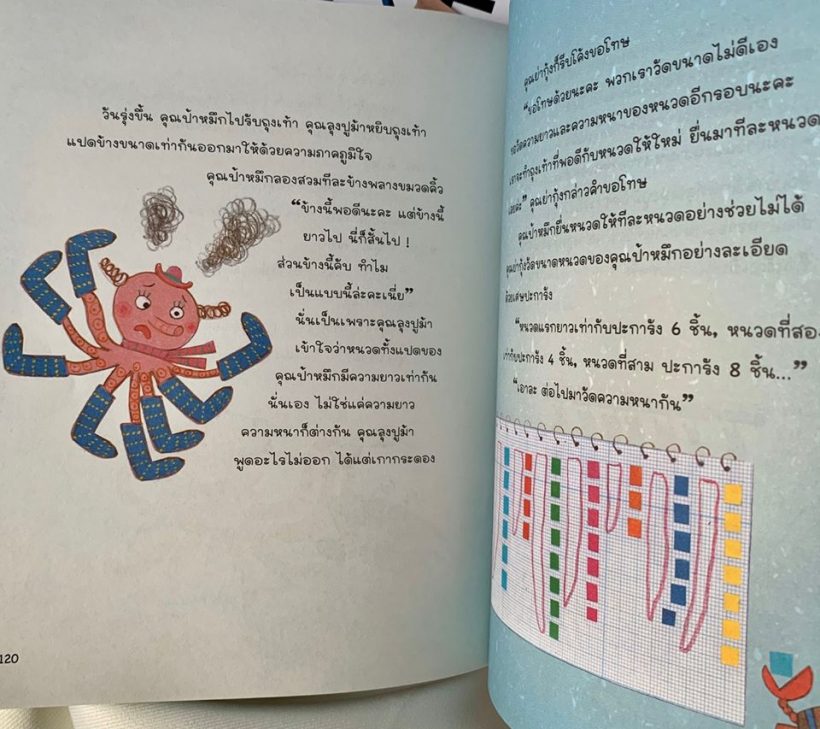 วันรุ่งขึ้น คุณป้าหมึกไปรับถุงเท้า คุณลุงปูม้าหยิบถุงเท้า
แปดข้างขนาดเท่ากันออกมาให้ด้วยความภาคภูมิใจ
คุณป้าหมึกลองสวมทีละข้างพลางขมวดคิ้ว
“ข้างนี้พอดีนะคะ แต่ข้างนี้
ยาวไป นี่ก็สั้นไป !
ส่วนข้างนี้คับ ทำไม
เป็นแบบนี้ล่ะคะเนี่ย”
นั่นเป็นเพราะคุณลุงปูม้า
เข้าใจว่าหนวดทั้งแปดของ
คุณป้าหมึกมีความยาวเท่ากัน
นั่นเอง ไม่ใช่แค่ความยาว
ความหนาก็ต่างกัน คุณลุงปูม้า
พูดอะไรไม่ออก ได้แต่เกากระดอง
120
คุณย่ากุ้งก็รีบโค้งขอโทษ
“ขอโทษด้วยนะคะ พวกเราวัดขนาดไม่ดีเอง
ขอวัดความยาวและความหนาของหนวดอีกรอบนะคะ
เราจะทำถุงเท้าที่พอดีกับหนวดให้ใหม่ ยื่นมาทีละหนวด
เลยค่ะ” คุณย่ากุ้งกล่าวคำขอโทษ
คุณป้าหมึกยื่นหนวดให้ทีละหนวดอย่างช่วยไม่ได้
คุณย่ากุ้งวัดขนาดหนวดของคุณป้าหมึกอย่างละเอียด
ด้วยเศษปะการัง
“หนวดแรกยาวเท่ากับปะการัง 6 ชิ้น, หนวดที่สอง
เท่ากับปะการัง 4 ชิ้น, หนวดที่สาม ปะการัง 8 ชิ้น...”
“เอาละ ต่อไปมาวัดความหนากัน”